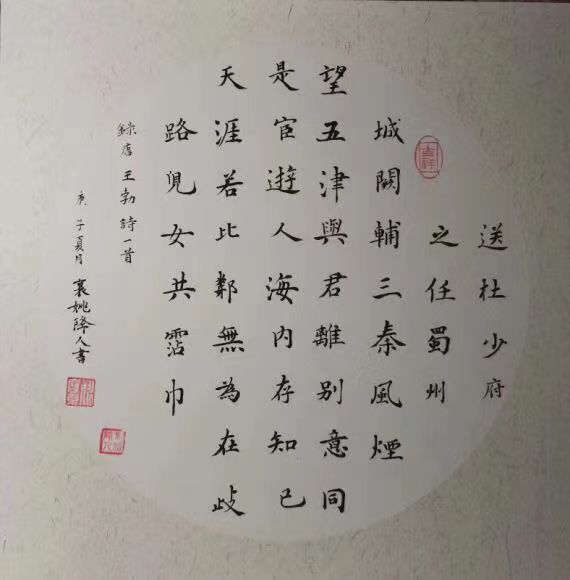 送杜少府
之任蜀州
城闕輔三秦風煙
望五津與君離别意同
是宦遊人海内存知己
天涯若比鄰無為在歧
路兒女共霑巾
錄唐王勃詩一首
庚子夏月襄姚降人書